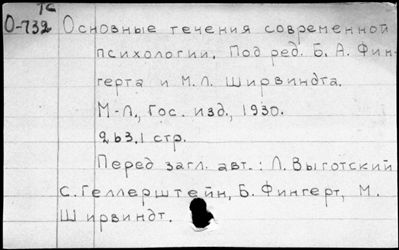 1с
О-732 Основные течения современной
психологии. Под ред. Б. А. Фин-
герта и М. Л. Ширвиндта.
М-Л., Гос. изд., 1930.
263.1 стр.
Перед загл. авт.: Л. Выготский
С. Геллерштейн, Б. Фингерт, М.
Ширвиндт.